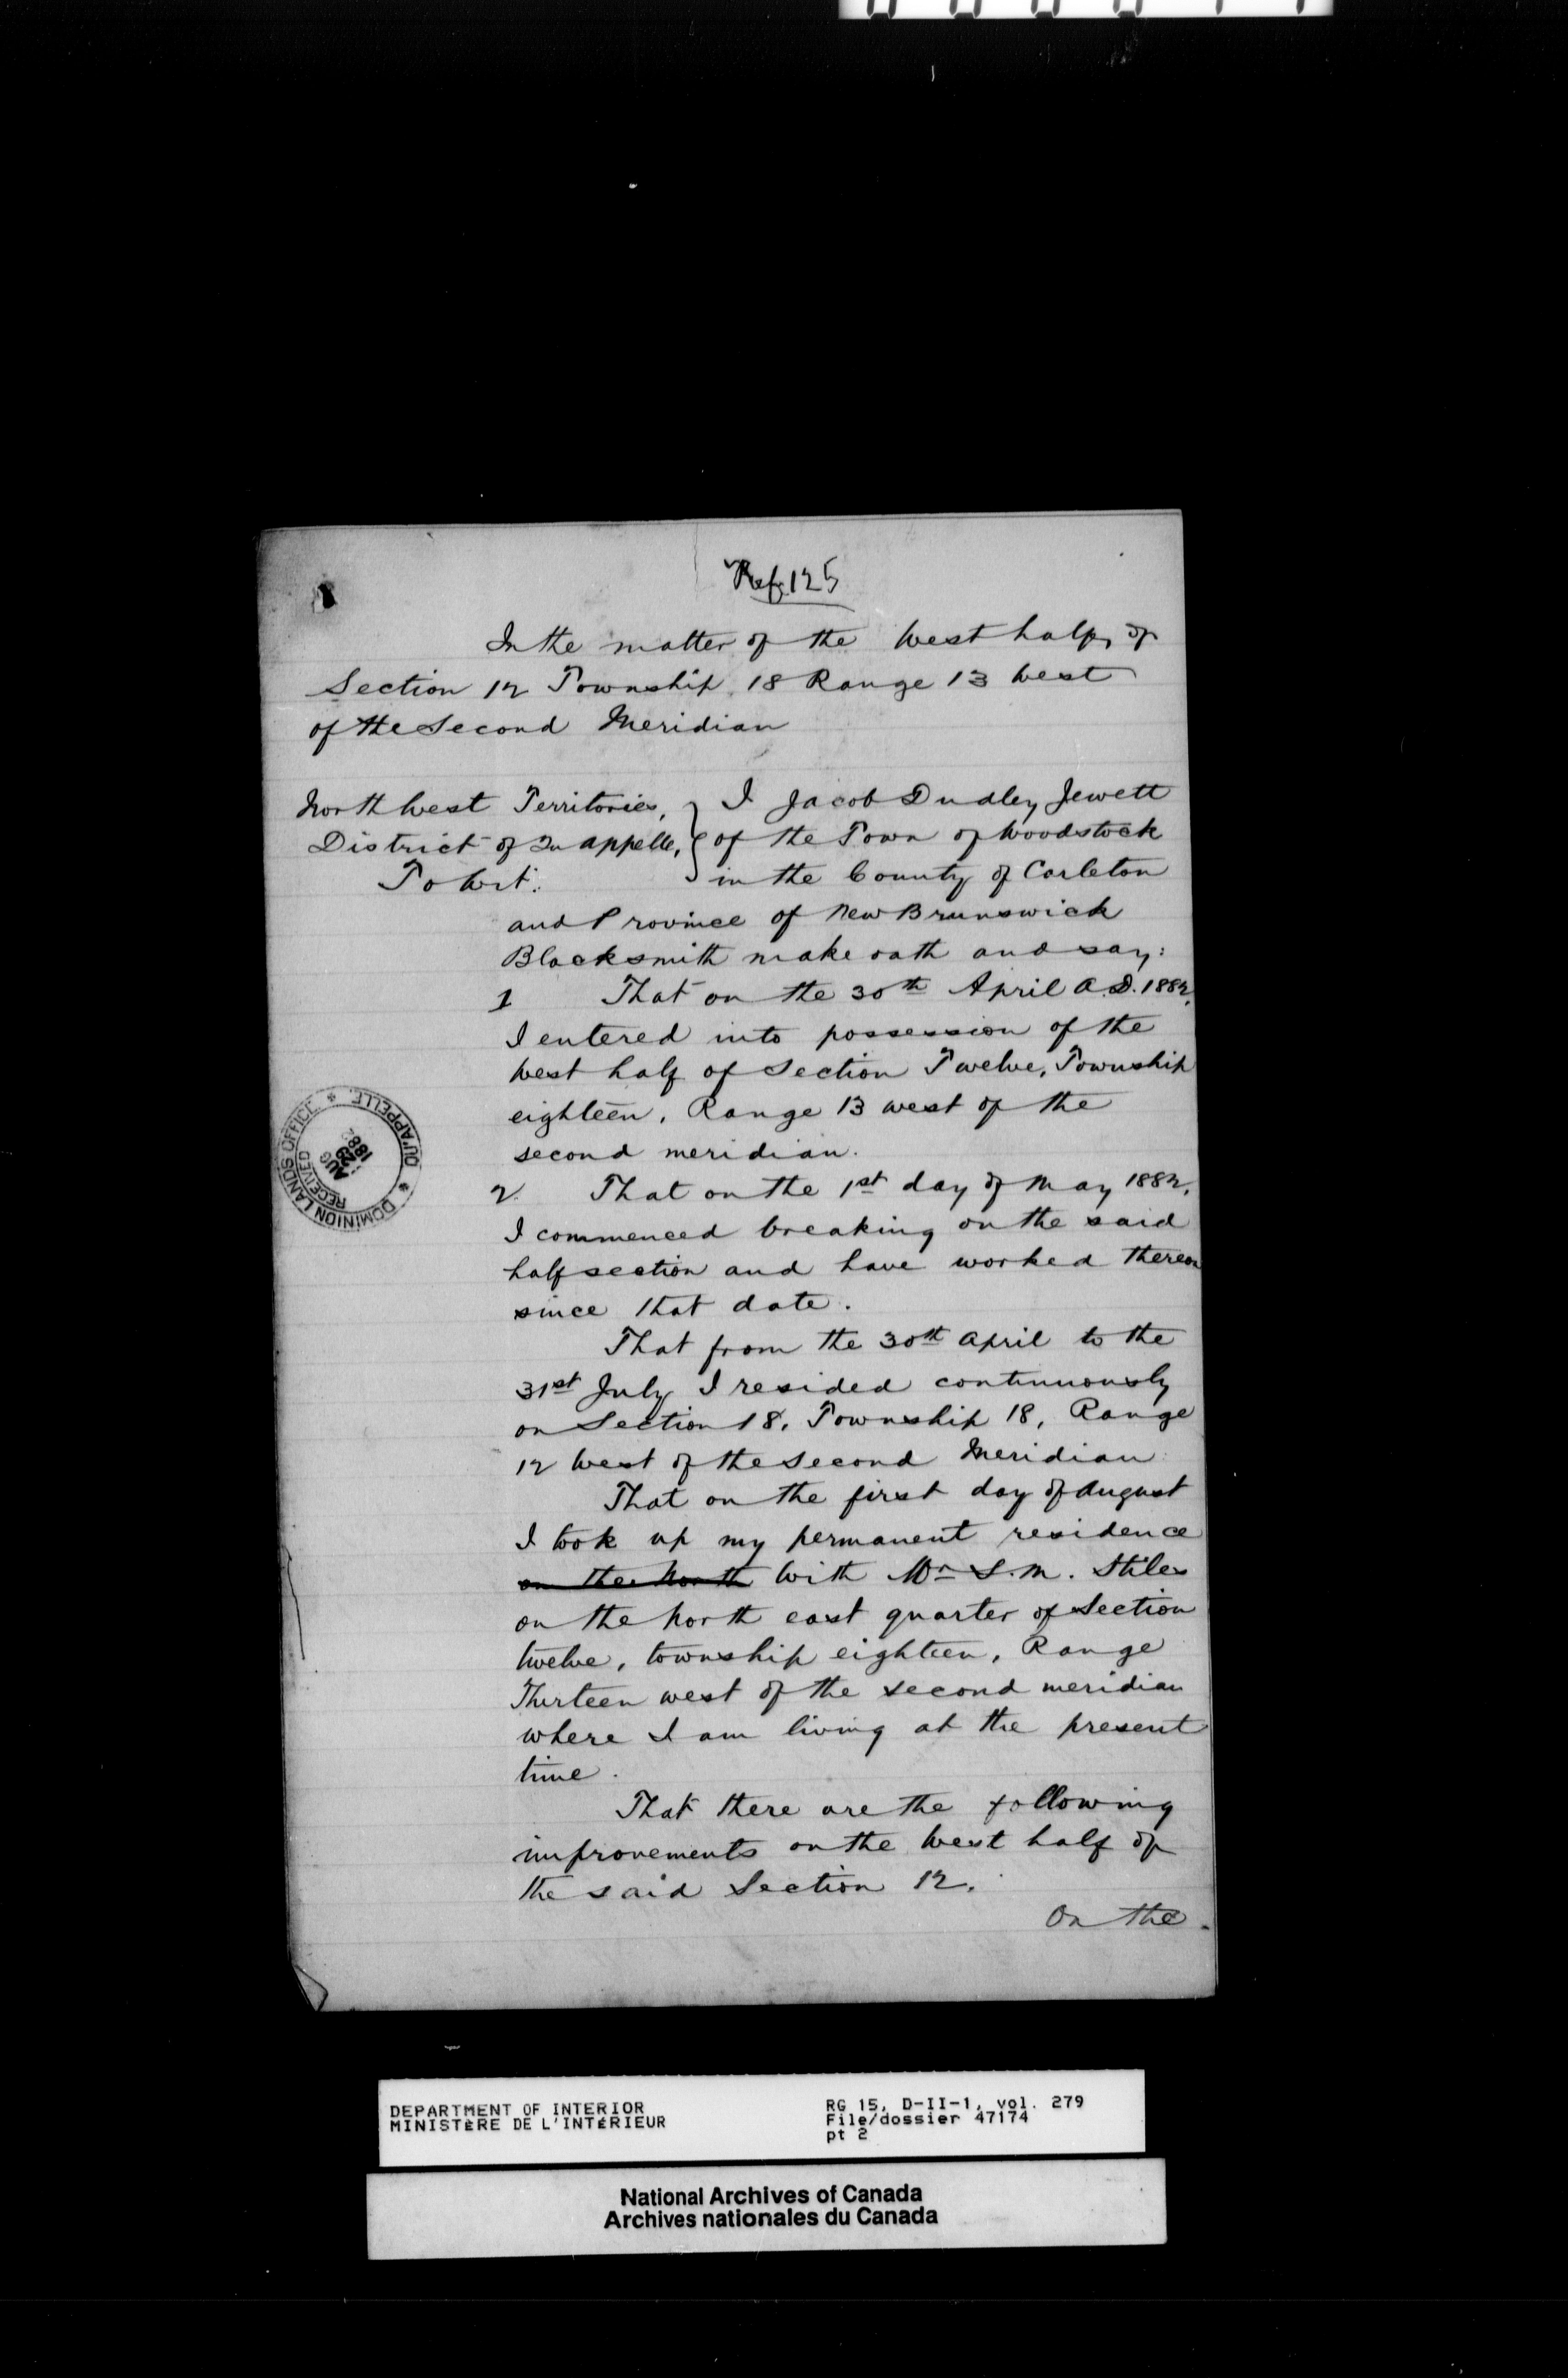 Ref. 125
In the matter of the West half of
Section 12 Township 18 Range 13 West
of the Second Meridian
North West Territories, } I Jacob Dudley Jewett
District of Qu'appelle, } of the Town of Woodstock
To Wit: } in the County of Carleton
and Province of New Brunswick
Blacksmith make oath and say:
1 That on the 30th April A.D. 1882,
I entered into possession of the
West half of Section Twelve, Township
eighteen, Range 13 west of the
second meridian.
2. That on the 1st day of May 1882,
I commenced breaking on the said
half section and have worked thereon
since that date.
That from the 30th April to the
31st July I resided continuously
on Section 18, Township 18, Range
12 West of the Second Meridian
That on the first day of August
I took up my permanent residence
on the North With Mr S. M. Stiles
on the North east quarter of Section
twelve, township eighteen, Range
Thirteen west of the second meridian
where I am living at the present
time.
That there are the following
improvements on the West half of
the said Section 12.
On the
DOMINION LANDS OFFICE * QU'APPELLE *
RECEIVED
AUG
1882
DEPARTMENT OF INTERIOR
MINISTÈRE DE L'INTÉRIEUR
RG 15, D-II-1, vol. 279
File/dossier 47174
pt 2
National Archives of Canada
Archives nationales du Canada